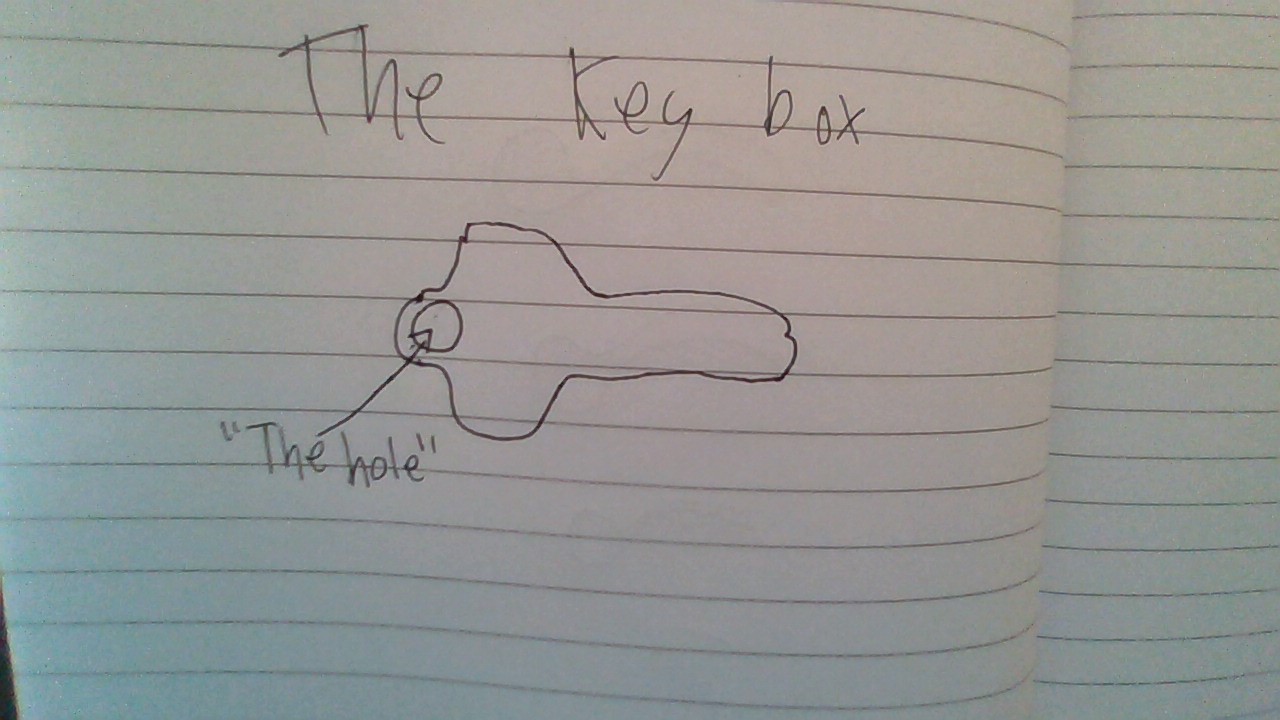 The Key box
"The hole"